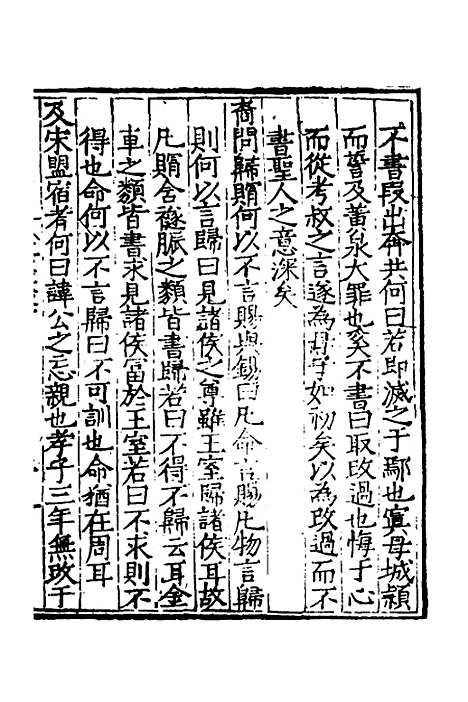 不書段出奔共何曰若即滅之于鄢也寘母城潁
而誓及黃泉大罪也奚不書曰取攺過也悔于心
而從考叔之言遂為母子如初矣以為攺過而不
書聖人之意深矣
啇問歸賵何以不言賜與錫曰凡命言賜凡物言歸
則何以言歸曰見諸侯之尊雖王室歸諸侯耳故
凡賵舍襚脤之類皆書歸若曰不得不歸云耳金
車之類皆書求見諸侯富於王室若曰不求則不
得也命何以不言歸曰不可訓也命猶在周耳
及宋盟宿者何曰諱公之忘親也孝子三年無攺于